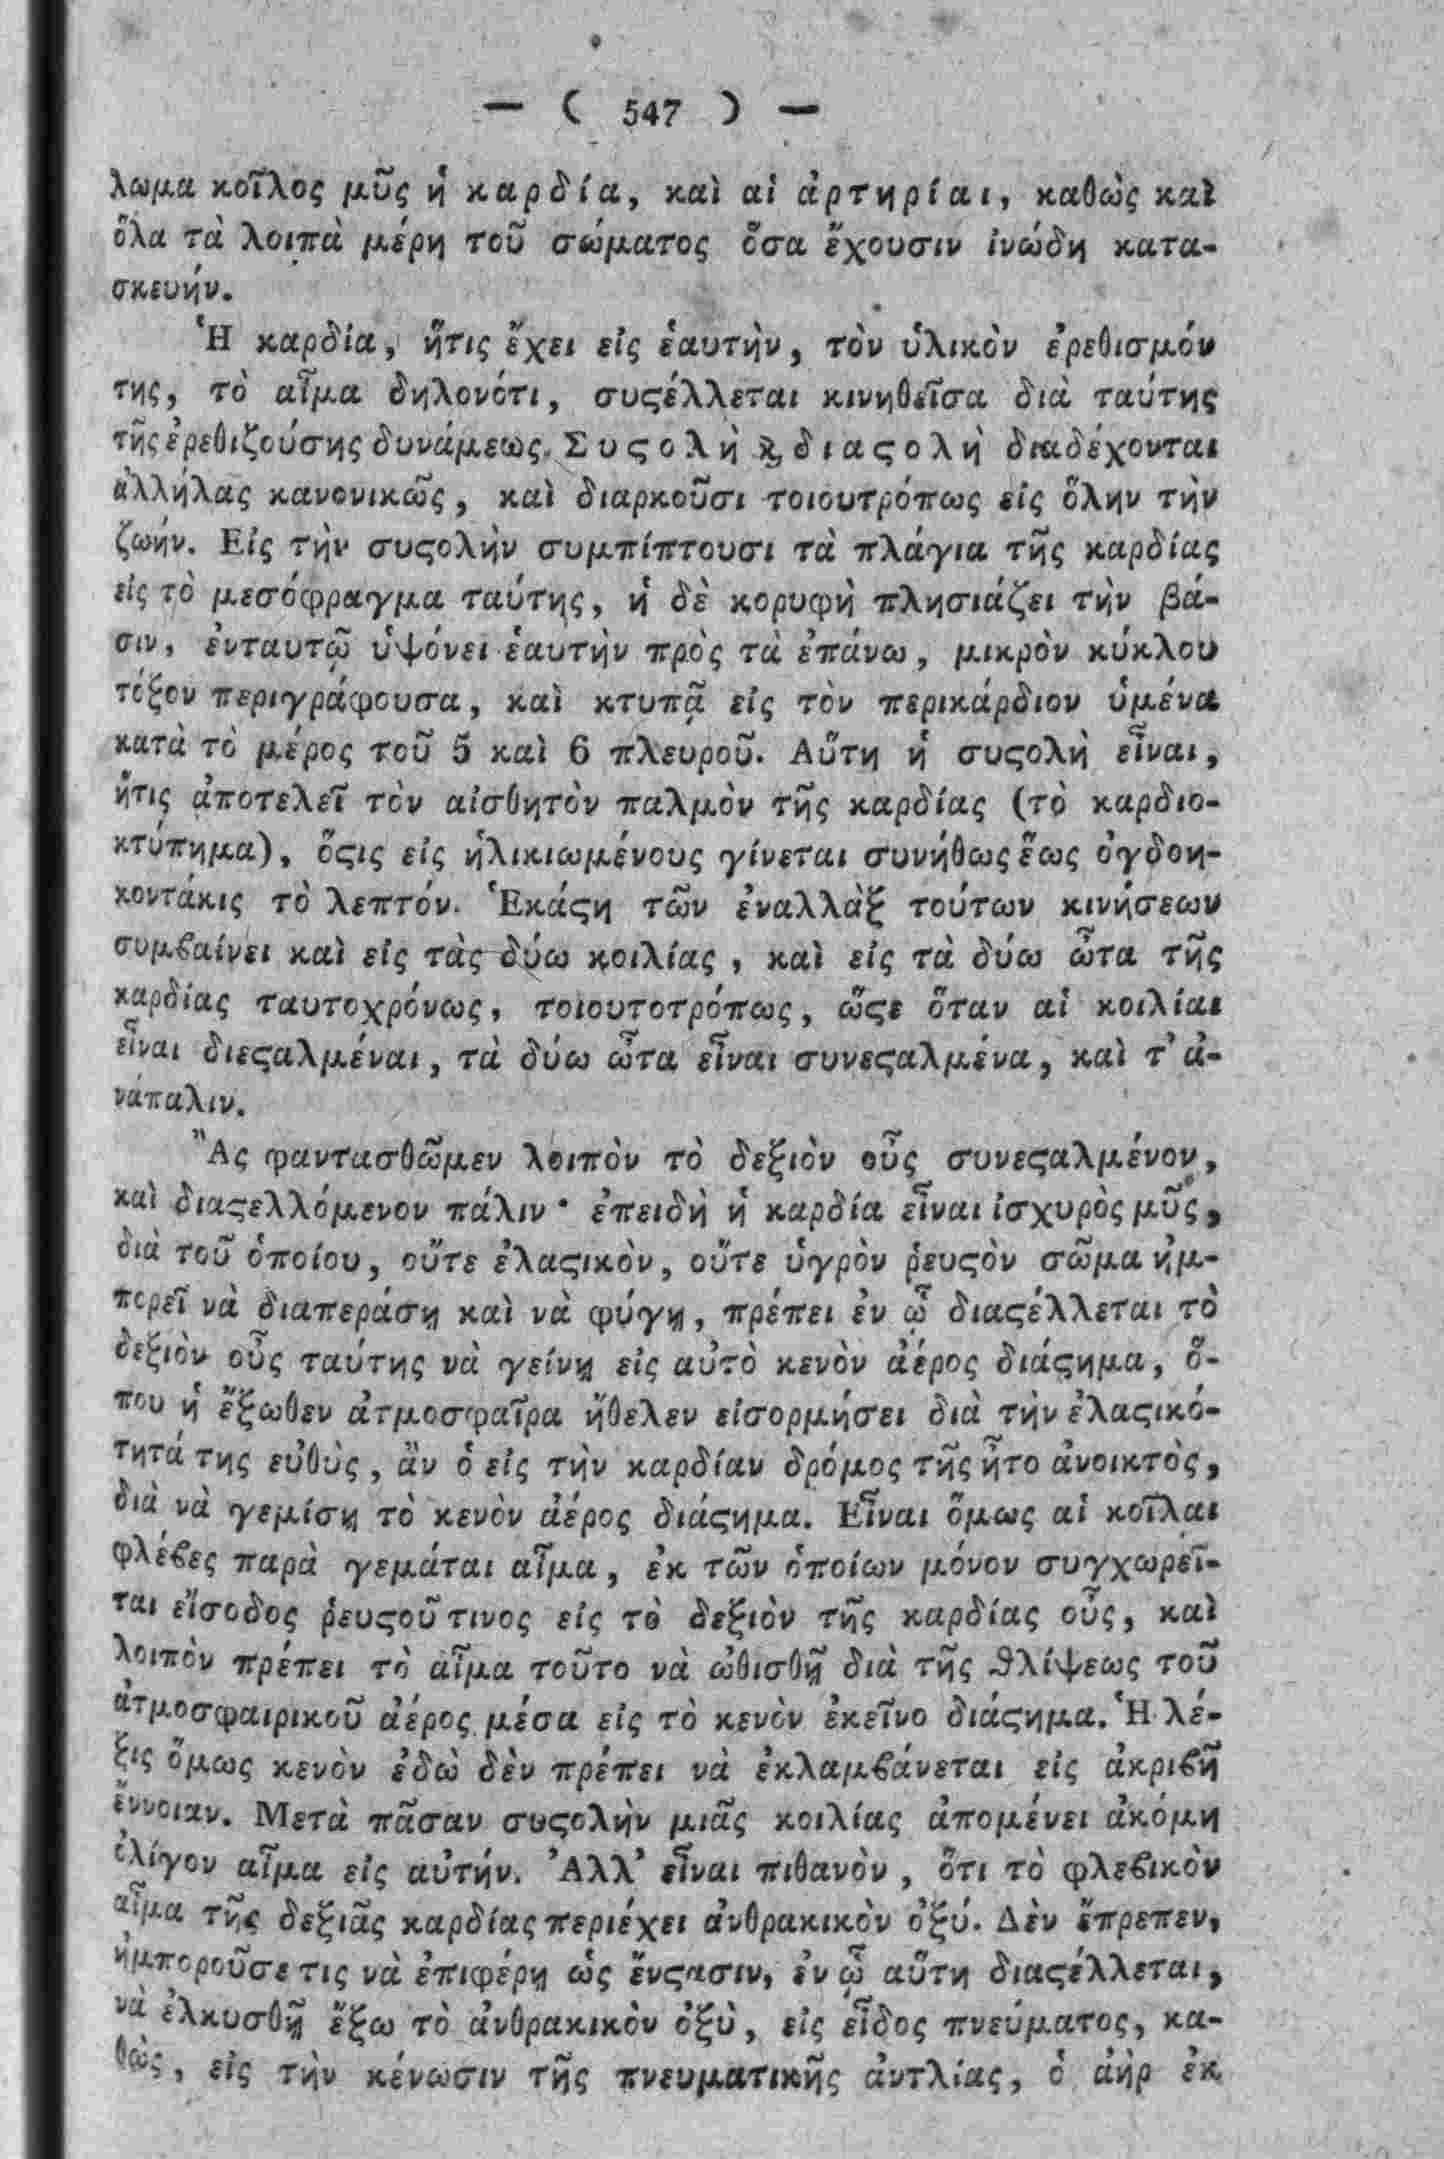 — ( 547 ) —
λωμα κοῖλος μῦς ἡ καρδία, καὶ αἱ ἀρτηρίαι, καθὼς καὶ
ὅλα τὰ λοιπὰ μέρη τοῦ σώματος ὅσα ἔχουσιν ἰνώδη κατα-
σκευήν.
Ἡ καρδία, ἥτις ἔχει εἰς ἑαυτὴν, τὸν ὑλικὸν ἐρεθισμόν
της, τὸ αἷμα δηλονότι, συϛέλλεται κινηθεῖσα διὰ ταύτης
τῆς ἐρεθιζούσης δυνάμεως. Συϛολὴ ϗ διαϛολὴ διαδέχονται
ἀλλήλας κανονικῶς, καὶ διαρκοῦσι τοιουτρόπως εἰς ὅλην τὴν
ζωήν. Εἰς τὴν συϛολὴν συμπίπτουσι τὰ πλάγια τῆς καρδίας
εἰς τὸ μεσόφραγμα ταύτης, ἡ δὲ κορυφὴ πλησιάζει τὴν βά-
σιν, ἐνταυτῷ ὑψόνει ἑαυτὴν πρὸς τὰ ἐπάνω, μικρὸν κύκλου
τόξον περιγράφουσα, καὶ κτυπᾷ εἰς τὸν περικάρδιον ὑμένα
κατὰ τὸ μέρος τοῦ 5 καὶ 6 πλευροῦ. Αὕτη ἡ συϛολὴ εἶναι,
ἥτις ἀποτελεῖ τὸν αἰσθητὸν παλμὸν τῆς καρδίας (τὸ καρδιο-
κτύπημα), ὅϛις εἰς ἡλικιωμένους γίνεται συνήθως ἕως ὀγδοη-
κοντάκις τὸ λεπτόν. Ἑκάϛη τῶν ἐναλλὰξ τούτων κινήσεων
συμϐαίνει καὶ εἰς τὰς δύω κοιλίας, καὶ εἰς τὰ δύω ὦτα τῆς
καρδίας ταυτοχρόνως, τοιουτοτρόπως, ὥϛε ὅταν αἱ κοιλίαι
εἶναι διεϛαλμέναι, τὰ δύω ὦτα εἶναι συνεϛαλμένα, καὶ τ' ἀ-
νάπαλιν.
Ἂς φαντασθῶμεν λοιπὸν τὸ δεξιὸν οὖς συνεϛαλμένον,
καὶ διαϛελλόμενον πάλιν· ἐπειδὴ ἡ καρδία εἶναι ἰσχυρὸς μῦς,
διὰ τοῦ ὁποίου, οὔτε ἐλαϛικὸν, οὔτε ὑγρὸν ῥευϛὸν σῶμα ἠμ-
πορεῖ νὰ διαπεράσῃ καὶ νὰ φύγῃ, πρέπει ἐν ᾧ διαϛέλλεται τὸ
δεξιὸν οὖς ταύτης νὰ γείνῃ εἰς αὐτὸ κενὸν ἀέρος διάϛημα, ὅ-
που ἡ ἔξωθεν ἀτμοσφαῖρα ἤθελεν εἰσορμήσει διὰ τὴν ἐλαϛικό-
τητά της εὐθὺς, ἂν ὁ εἰς τὴν καρδίαν δρόμος τῆς ἦτο ἀνοικτὸς,
διὰ νὰ γεμίσῃ τὸ κενὸν ἀέρος διάϛημα. Εἶναι ὅμως αἱ κοῖλαι
φλέϐες παρὰ γεμάται αἷμα, ἐκ τῶν ὁποίων μόνον συγχωρεῖ-
ται εἴσοδος ῥευϛοῦ τινος εἰς τὸ δεξιὸν τῆς καρδίας οὖς, καὶ
λοιπὸν πρέπει τὸ αἷμα τοῦτο νὰ ὠθισθῇ διὰ τῆς ϑλίψεως τοῦ
ἀτμοσφαιρικοῦ ἀέρος μέσα εἰς τὸ κενὸν ἐκεῖνο διάϛημα. Ἡ λέ-
ξις ὅμως κενὸν ἐδὼ δὲν πρέπει νὰ ἐκλαμϐάνεται εἰς ἀκριϐῆ
ἔννοιαν. Μετὰ πᾶσαν συϛολὴν μιᾶς κοιλίας ἀπομένει ἀκόμη
ὀλίγον αἷμα εἰς αὐτήν. Ἀλλ' εἶναι πιθανὸν, ὅτι τὸ φλεϐικὸν
αἷμα τῆς δεξιᾶς καρδίας περιέχει ἀνθρακικὸν ὀξύ. Δὲν ἔπρεπεν,
ἠμποροῦσε τις νὰ ἐπιφέρῃ ὡς ἔνϛασιν, ἐν ᾧ αὕτη διαϛέλλεται,
νὰ ἑλκυσθῇ ἔξω τὸ ἀνθρακικὸν ὀξὺ, εἰς εἶδος πνεύματος, κα-
θὼς, εἰς τὴν κένωσιν τῆς πνευματικῆς ἀντλίας, ὁ ἀὴρ ἐκ